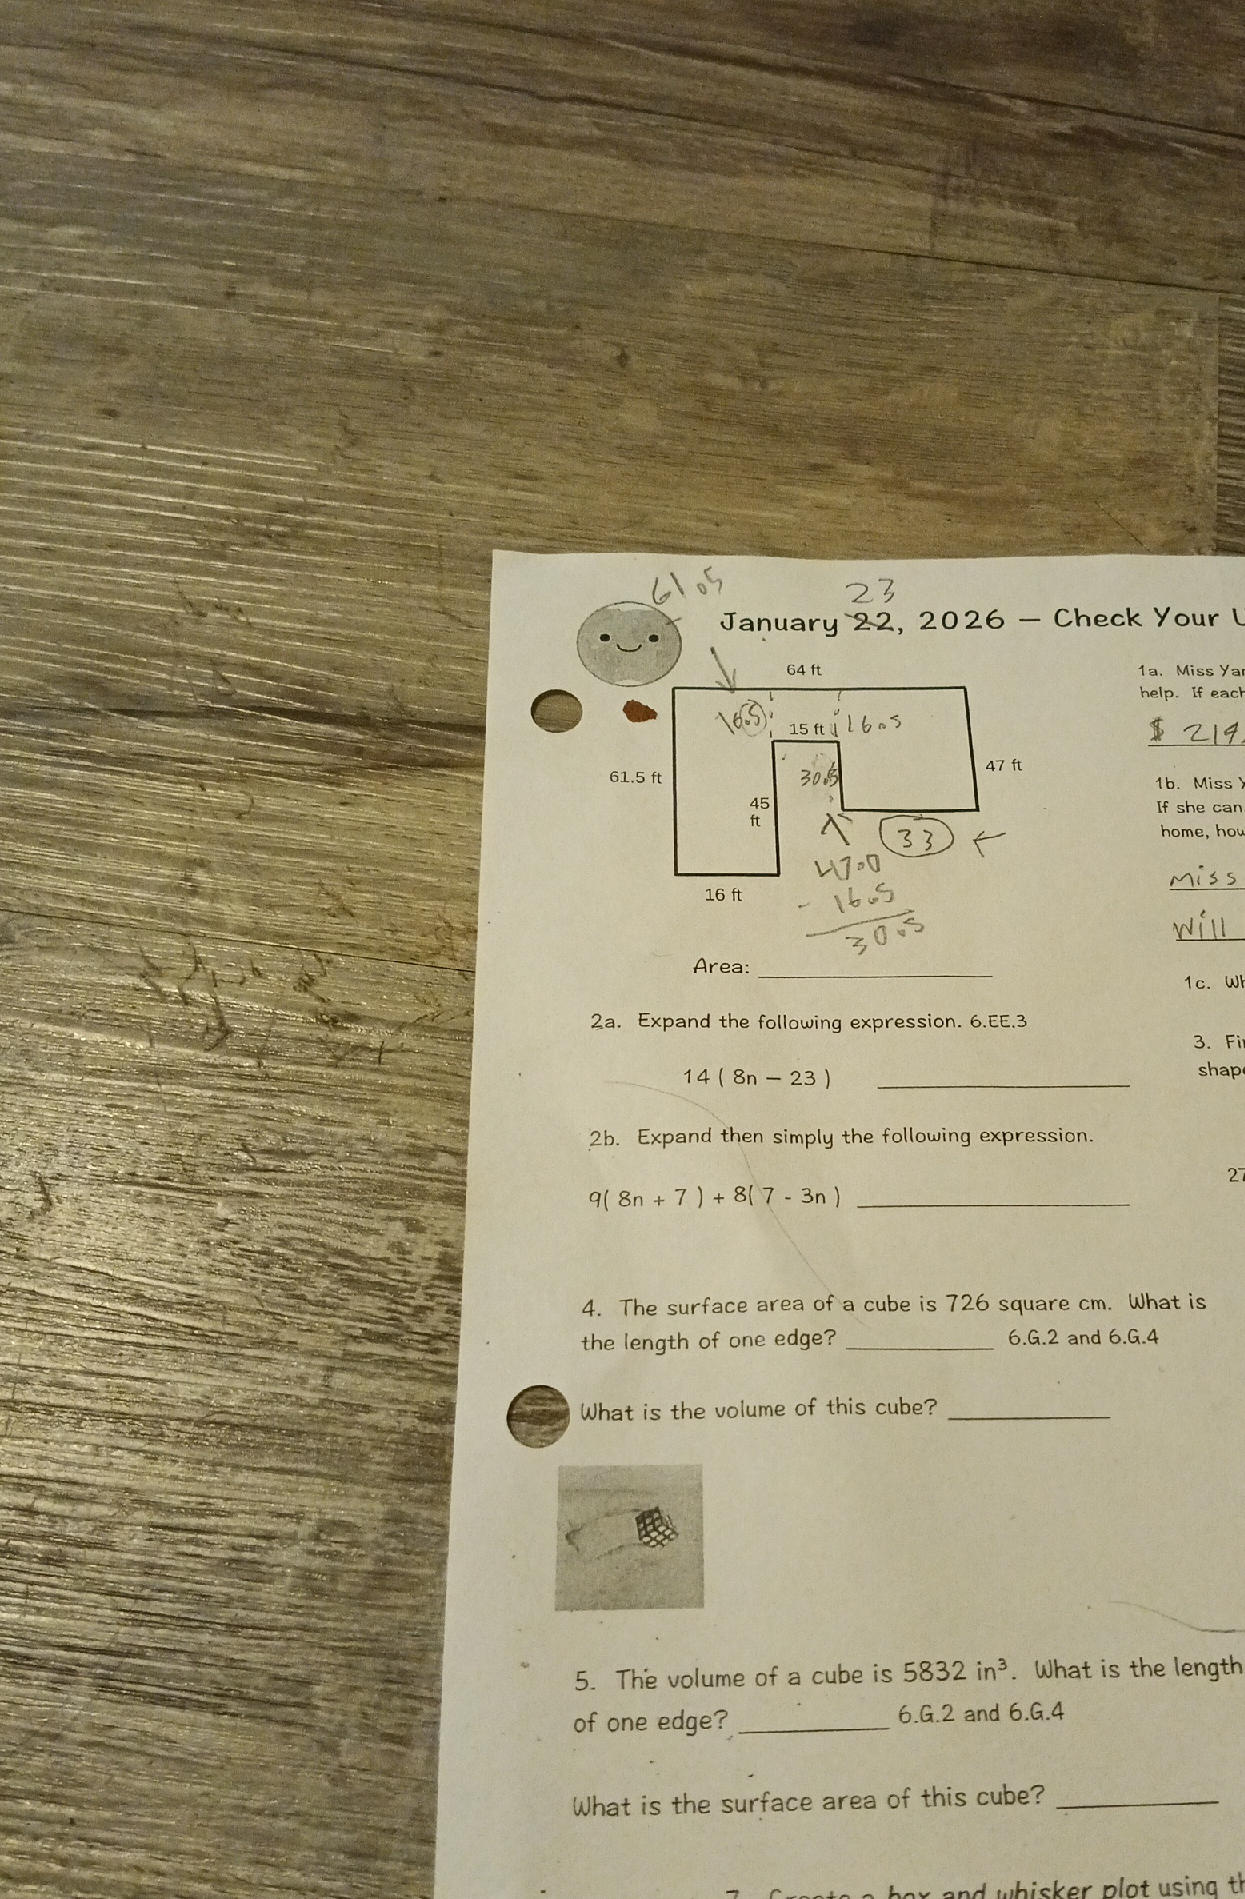 61.5
23
January 22, 2026 – Check Your
64 ft
1a. Miss
help. If each
16.5
15 ft
16.5
$ 219.
61.5 ft
30.5
47 ft
1b. Miss
45
ft
If she can
33
home, how
47.0
16 ft
- 16.5
Miss
30.5
will
Area:
1c.
2a. Expand the following expression. 6.EE.3
3.
14 ( 8n – 23 )
2b. Expand then simply the following expression.
9( 8n + 7 ) + 8( 7 - 3n )
4. The surface area of a cube is 726 square cm. What is
the length of one edge? 6.G.2 and 6.G.4
What is the volume of this cube?
5. The volume of a cube is 5832 in³. What is the length
of one edge? 6.G.2 and 6.G.4
What is the surface area of this cube?
box and whisker plot using